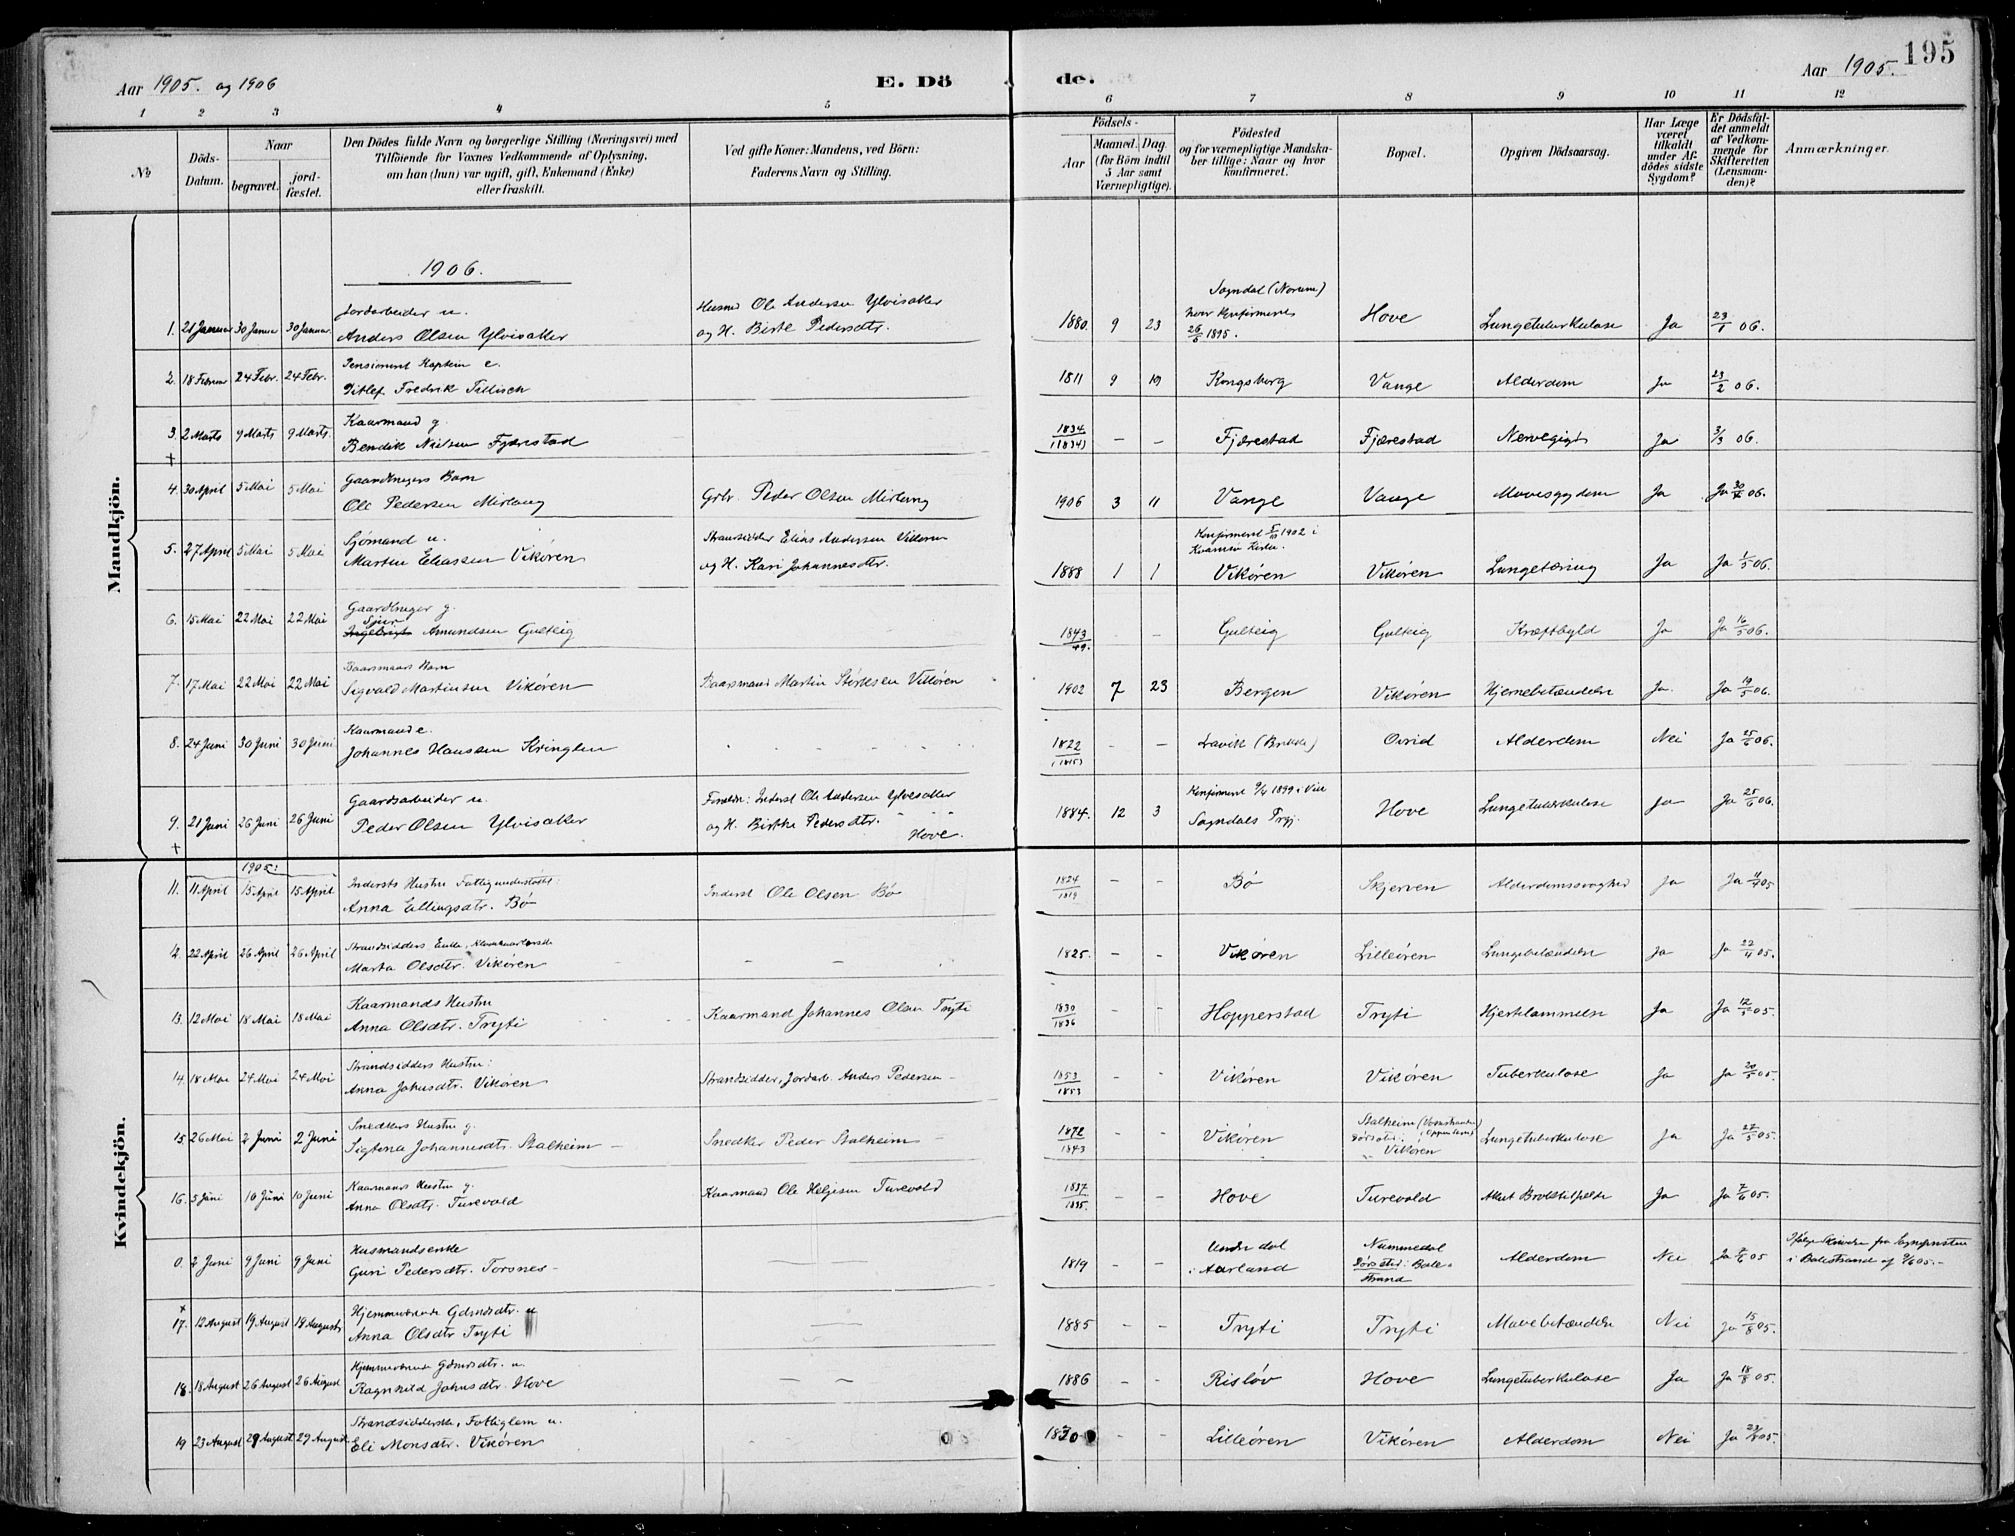 195
Aar 1905. og 1906
E. Dö de.
Aar 1905.
1 2 3 4 5 6 7 8 9 10 11 12
No
Döds-Datum.
Naar
begravet.
jordfæstet.
Den Dödes fulde Navn og borgerlige Stilling (Næringsvei) med
Tilföiende for Voxnes Vedkommende af Oplysning,
om han (hun) var ugift, gift, Enkemand (Enke)
eller fraskilt.
Ved gifte Koner: Mandens, ved Börn:
Faderens Navn og Stilling.
Födsels-
Aar
Maaned. Dag.
(for Börn indtil
5 Aar samt
Værnepligtige).
Födested
og for værnepligtige Mandska-
ber tillige: Naar og hvor
konfirmeret.
Bopæl.
Opgiven Dödsaarsag.
Har Læge
været
tilkaldt
under Af-
dödes sidste
Sygdom?
Er Dödsfal-
det anmeldt
af Vedkom-
mende for
Skifteretten
(Lensman-
den)?
Anmærkninger.
Mandkjön.
1906.
Jordarbeider u. Husmd Ole Andersen Ylvisaker Sogndal (Norum)
1. 21 Januar 30 Januar 30 Januar Anders Olsen Ylvisaker og H. Birte Pedersdtr. 1880. 9 23 hvor konfirmeret 26/5 1895. Hove Lungetuberkulose Ja 23/1 06.
Pensioneret Kaptein e.
2. 18 Februar 24 Febr. 24 Febr. Ditlef Fredrik Tillisch 1811 9 19 Kongsberg Vange Alderdom Ja 23/2 06.
Kaarmand g.
3. 2 Marts 9 Marts 9 Marts Bendik Nielsen Fjærestad 1834 (1834) – – Fjærestad Fjærestad Ja 3/3 06.
+
Gaardbrugers Barn
4. 30 April 5 Mai 5 Mai Ole Pedersen Grbr. Peder Olsen 1906 3 11 Vange Vange Mavesygdom Ja Ja 30/4 06.
Sjømand u. Strandsidder Elias Andersen Vikøren Konfirmeret 1902 i
5. 27 April 5 Mai 5 Mai Martin Eliassen Vikøren og H. Kari Johannesdtr. 1888 1 1 Vikøren Vikøren Lungetæring Ja Ja 1/5 06.
Gaardbruger g.
Sjur
6. 15 Mai 22 Mai 22 Mai Amundsen Gulteig 1843 49. – – Gulteig Gulteig Kræftbyld Ja Ja 16/5 06.
Baatsmands Barn
7. 17 Mai 22 Mai 22 Mai Sigvald Martinsen Vikøren Baatsmand Martin Vikøren 1902 7 23 Bergen Vikøren Hjernebetændelse Ja. Ja 19/5 06.
Kaarmand e.
8. 24 Juni 30 Juni 30 Juni Johannes Hanssen Kringlen 1822 (1815) – – Lavik Ovrid Alderdom Nei Ja 25/6 06.
Gaardsarbeider u. Foreldre: Inderst Ole Andersen Ylvisaker Konfirmeret 9/4 1899 i
9. 21 Juni 26 Juni 26 Juni Peder Olsen Ylvisaker og H. Birthe Pedersdtr. Hove. 1884. 12 3 Sogndals Prgj. Hove Lungetuberkulose Ja Ja 25/6 06.
+
Kvindekjön.
1905:
Indersts Hustru Fattigunderstøttet:
11. 11 April 15 April 15 April Anna Ellingsdtr. Bø Inderst Ole Olsen Bø 1824 1819 – – Bø Skjerven Alderdomssvaghed Ja Ja 11/4 05
Strandsidders Enke,
2. 22 April 26 April 26 April Marta Olsdtr. Vikøren – – 1825. – – Vikøren Lilleøren Lungebetændelse Ja Ja 22/4 05.
Kaarmands Hustru
13. 12 Mai 18 Mai 18 Mai Anna Olsdtr. Tryti Kaarmand Johannes Olsen Tryti 1830 1836 – – Hopperstad Tryti Hjertelammelse Ja Ja 12/5 05.
Strandsidders Hustru:
14. 18 Mai 24 Mai 24 Mai Anna Johnsdtr. Vikøren Strandsidder, Jordarb. Anders Pedersen – 1853 1853 – – Vikøren Vikøren Tuberkulose Ja Ja 20/5 05.
Snedkers Hustru g. Stalheim
15. 26 Mai 2 Juni 2 Juni Sigtona Johannesdtr. Stalheim – Snedker Peder Stalheim – 1872 1843 – – Vikøren Dørsted: Vikøren Lungetuberkulose Ja Ja 27/5 05.
Kaarmands Hustru g.
16. 5 Juni 10 Juni 10 Juni Anna Olsdtr. Turevold Kaarmand Ole Helgesen Turevold 1837 1835. – – Hove Turevold Akut Ja Ja 7/6 05.
Husmandsenke Underdal Nummedal Ifølge Skrivelse fra Sognepresten
0. 2 Juni 9 Juni 9 Juni Guri Pedersdtr. Torsnes – 1819 i Aurland Dørsted: Balestrand Alderdom Nei Ja 7/6 05 i Balestrand af 9/6 05. –
+
Hjemmeværende Gdmdsdtr. u
17. 12 August 19 August 18 August Anna Olsdtr Tryti 1885 – – Tryti Tryti Mavebetændelse Nei Ja 15/8 05.
Hjemmeværende Gdmdsdtr. u.
18. 18 August 26 August 26 August Ragnhild Johnsdtr. Hove – – 1886 – – Risløv Hove Lungetuberkulose Ja Ja 18/8 05.
Strandsidderske, Fattiglem u.
19 23 August 29 August 29 August Eli Monsdtr. Vikøren 1820 – – Lilleøren Vikøren Alderdom Nei Ja 23/8 05.